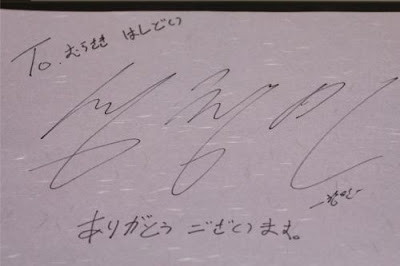 To. むらさき はしどい
-창민-
ありがとう ございます。